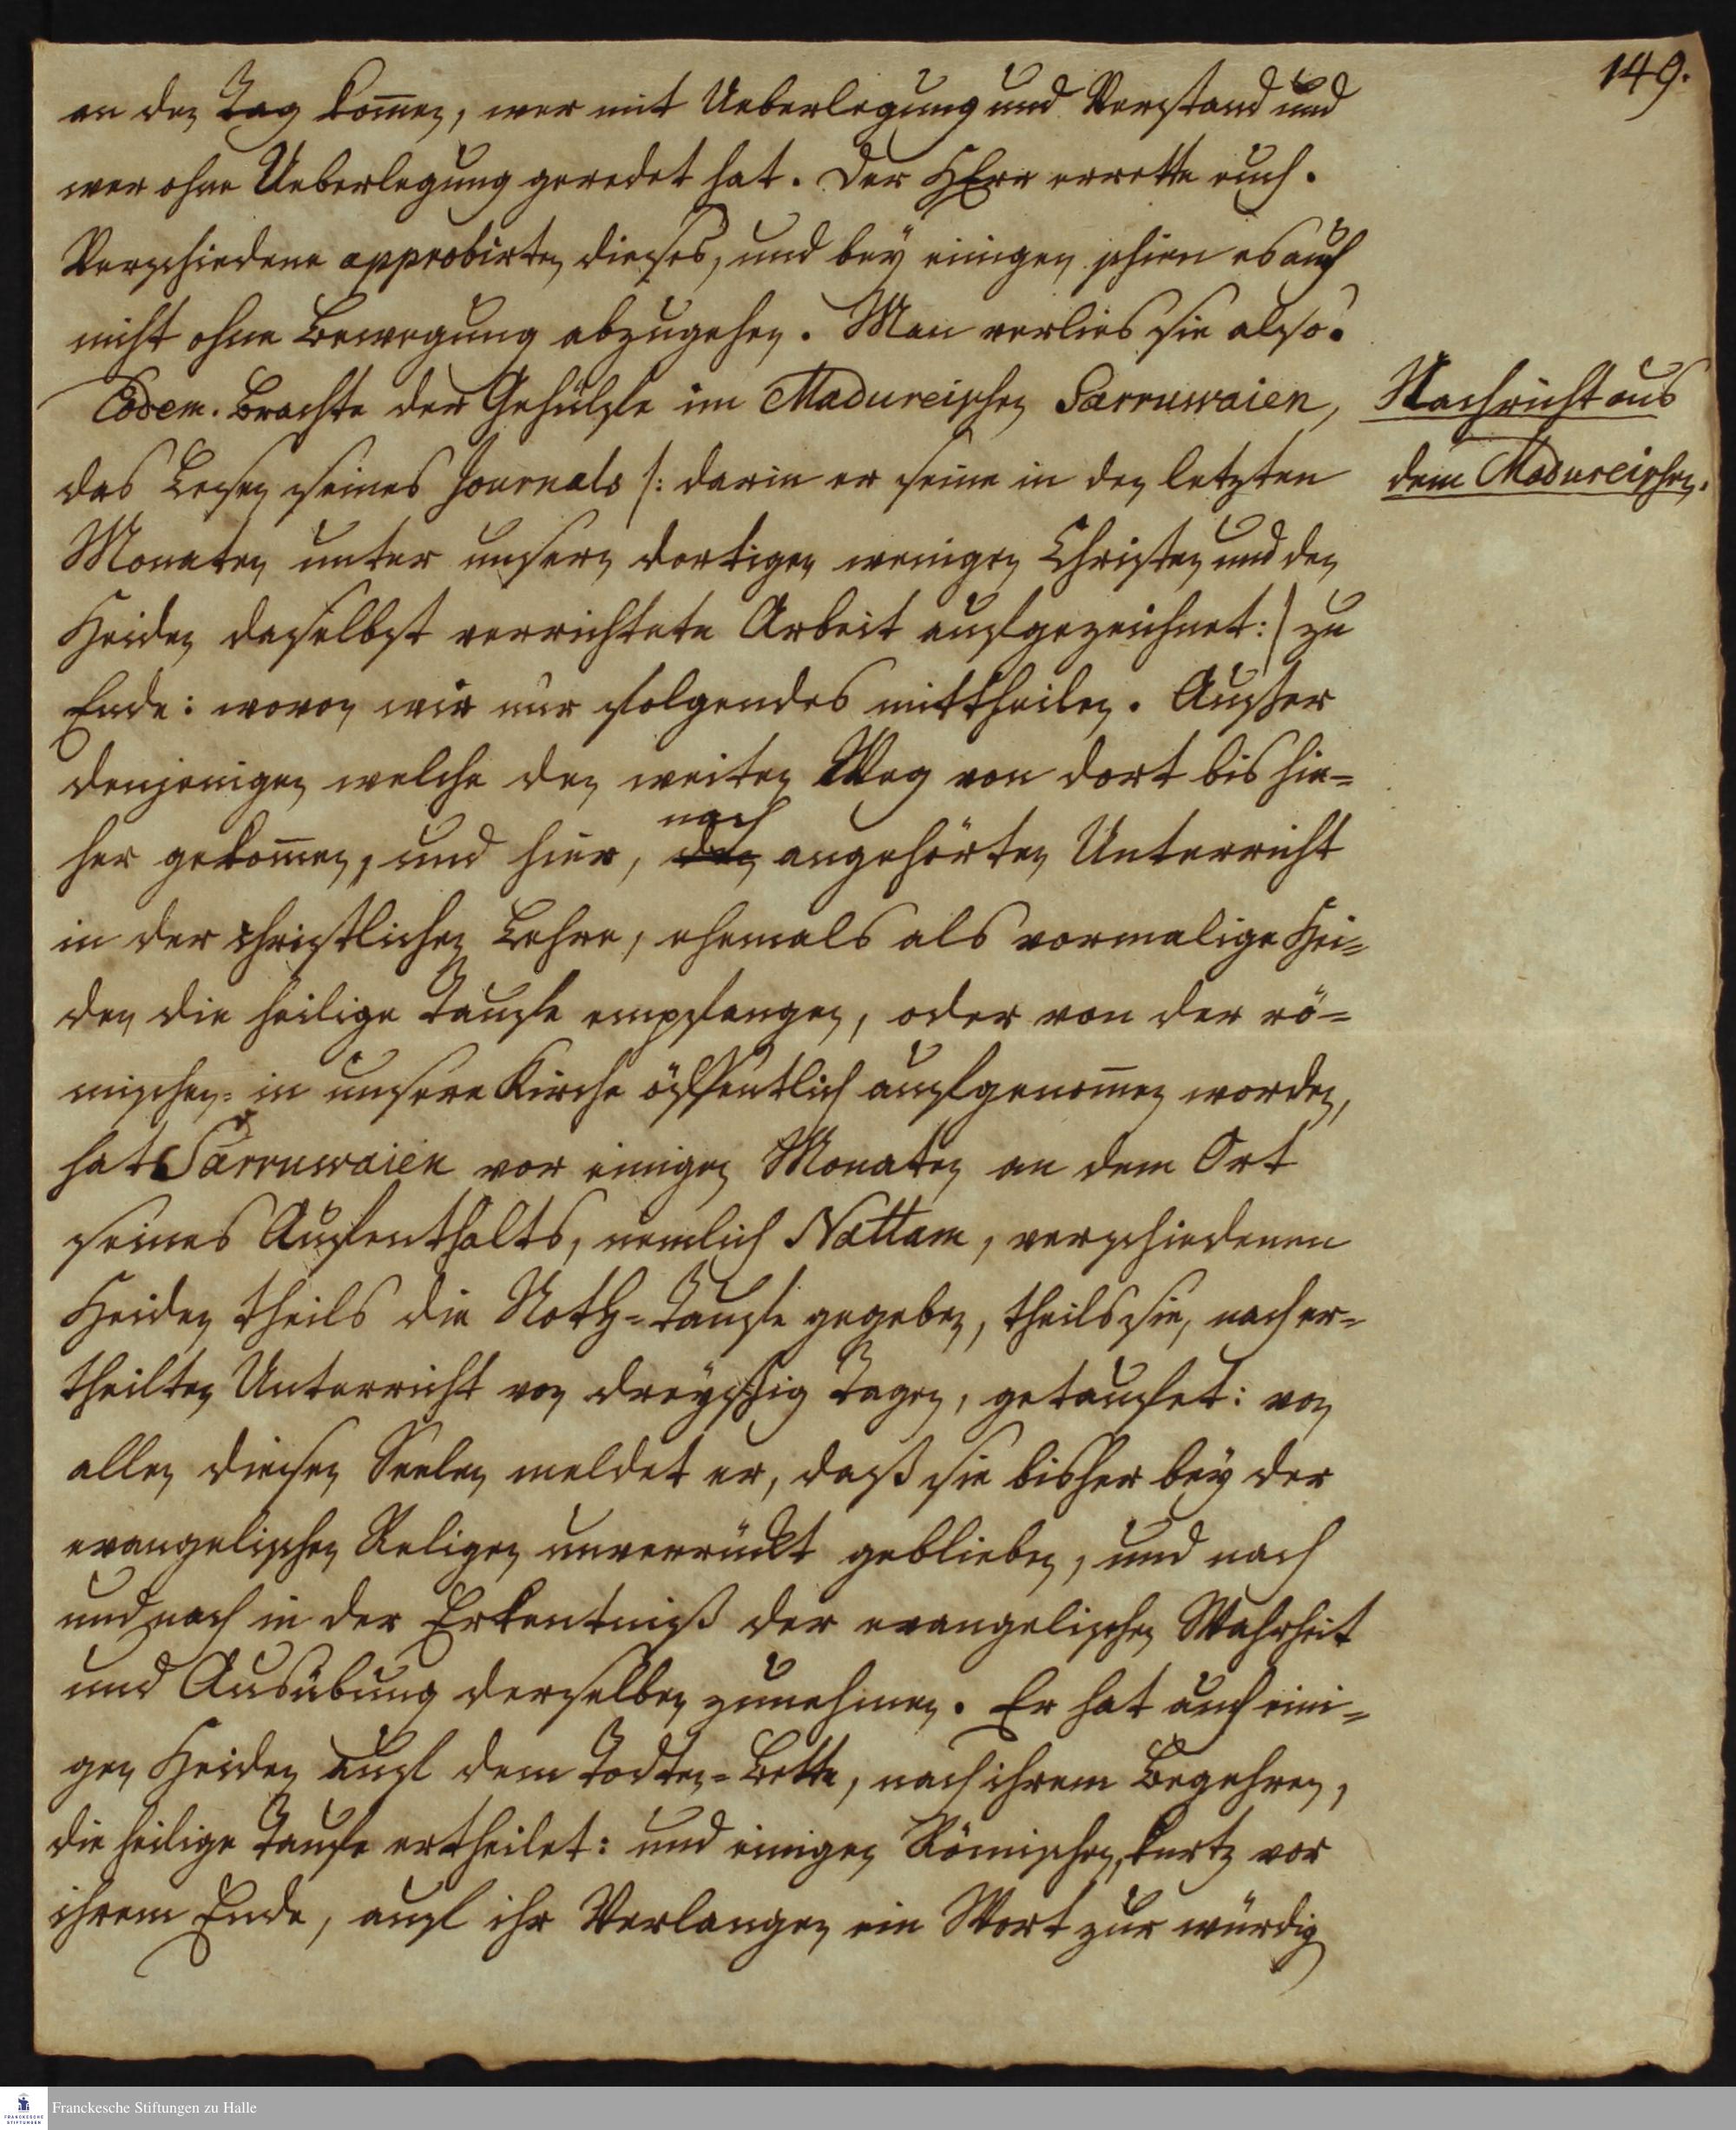 149.
an den Tag kom̄en, wer mit Ueberlegung und Verstand und
wer ohne Ueberlegung geredet hat. Der HErr errette euch.
Verschiedene approbirten dieses, und bey einigen schien es auch
nicht ohne Bewegung abzugehen. Man verlies sie also.
Eodem. Brachte der Gehülfe im Madureischen Sarruwaien,
das Lesen seines Journals /: darin er seine in den letzten
Monaten unter unsern dortigen wenigen Christen und den
Heiden daselbst verrichtete Arbeit aufgezeichnet :/ zu
Ende: wovon wir nur folgendes mittheilen. Ausser
denjenigen welche den weiten Weg von dort bis hie=
her gekom̄en, und hier, den nach angehörten Unterricht
in der christlichen Lehre, ehemals als vormalige Hei=
den die heilige Taufe empfangen, oder von der rö=
mischen= in unsere Kirche öffentlich aufgenom̄en worden,
hat Sarruwaien vor einigen Monaten an dem Ort
seines Aufenthalts, nemlich Nattam, verschiedenen
Heiden theils die Noth=Taufe gegeben, theils sie, nach er=
theilten Unterricht von dreyssig Tagen, getaufet: von
allen diesen Seelen meldet er, daß sie bisher bey der
evangelischen Religen unverrückt geblieben, und nach
und nach in der Erkentniß der evangelischen Wahrheit
und Ausübung derselben zunehmen. Er hat auch eini=
gen Heiden auf dem Todten=Bette, nach ihrem Begehren,
die heilige Taufe ertheilet: und einigen Römischen, kurtz vor
ihrem Ende, auf ihr Verlangen ein Wort zur würdig
Nachricht aus
dem Madureischen.
Franckesche Stiftungen zu Halle
FRANCKESCHE
STIFTUNGEN